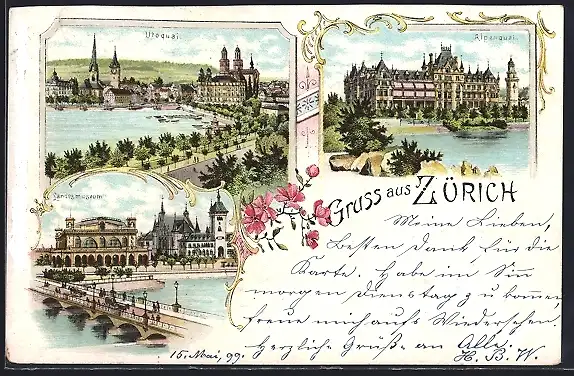 Utoquai.
Alpenquai.
Landesmuseum
Gruss aus ZÜRICH
Meine Lieben,
Besten Dank für die
Karte. Habe im Sinn
morgen Dienstag zu kommen,
freue mich aufs Wiedersehen.
Herzliche Grüße an Alle.
15. Mai, 99.
H. B. W.